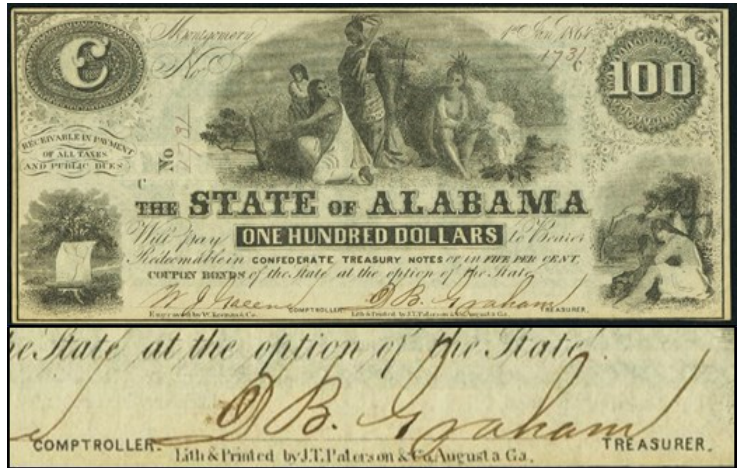 C
Montgomery
1st Jan. 1864
No
1731
C
100
RECEIVABLE IN PAYMENT
OF ALL TAXES
AND PUBLIC DUES
No
C
THE STATE OF ALABAMA
Will pay ONE HUNDRED DOLLARS to Bearer
Redeemable in CONFEDERATE TREASURY NOTES or in FIVE PER CENT,
COUPON BONDS of the State at the option of the State
W J Greene COMPTROLLER. D B. Graham TREASURER.
Lith & Printed by J.T. Paterson & Co. Augusta Ga.
he State at the option of the State.
COMPTROLLER. D B. Graham TREASURER.
Lith & Printed by J.T. Paterson & Co. Augusta Ga.